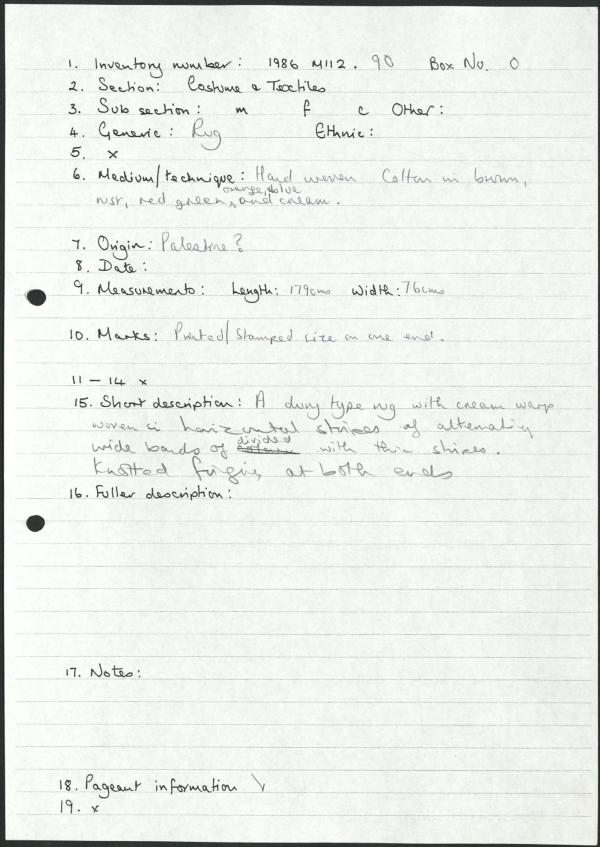 1. Inventory number: 1986 M112. 90 Box No. 0
2. Section: Costume & Textiles
3. Sub section: m f c Other:
4. Generic: Rug Ethnic:
5. x
6. Medium/technique: Hand woven Cotton in brown,
orange, blue
rust, red green, and cream.
7. Origin: Palestine?
8. Date:
9. Measurements: Length: 179cms Width: 76cms
10. Marks: Printed/Stamped size on one end.
11 – 14 x
15. Short description: A dury type rug with cream warp
woven in horizontal stripes of alternating
divided
wide bands of with thin stripes.
Knotted fringing at both ends
16. Fuller description:
17. Notes:
18. Pageant information \
19. x